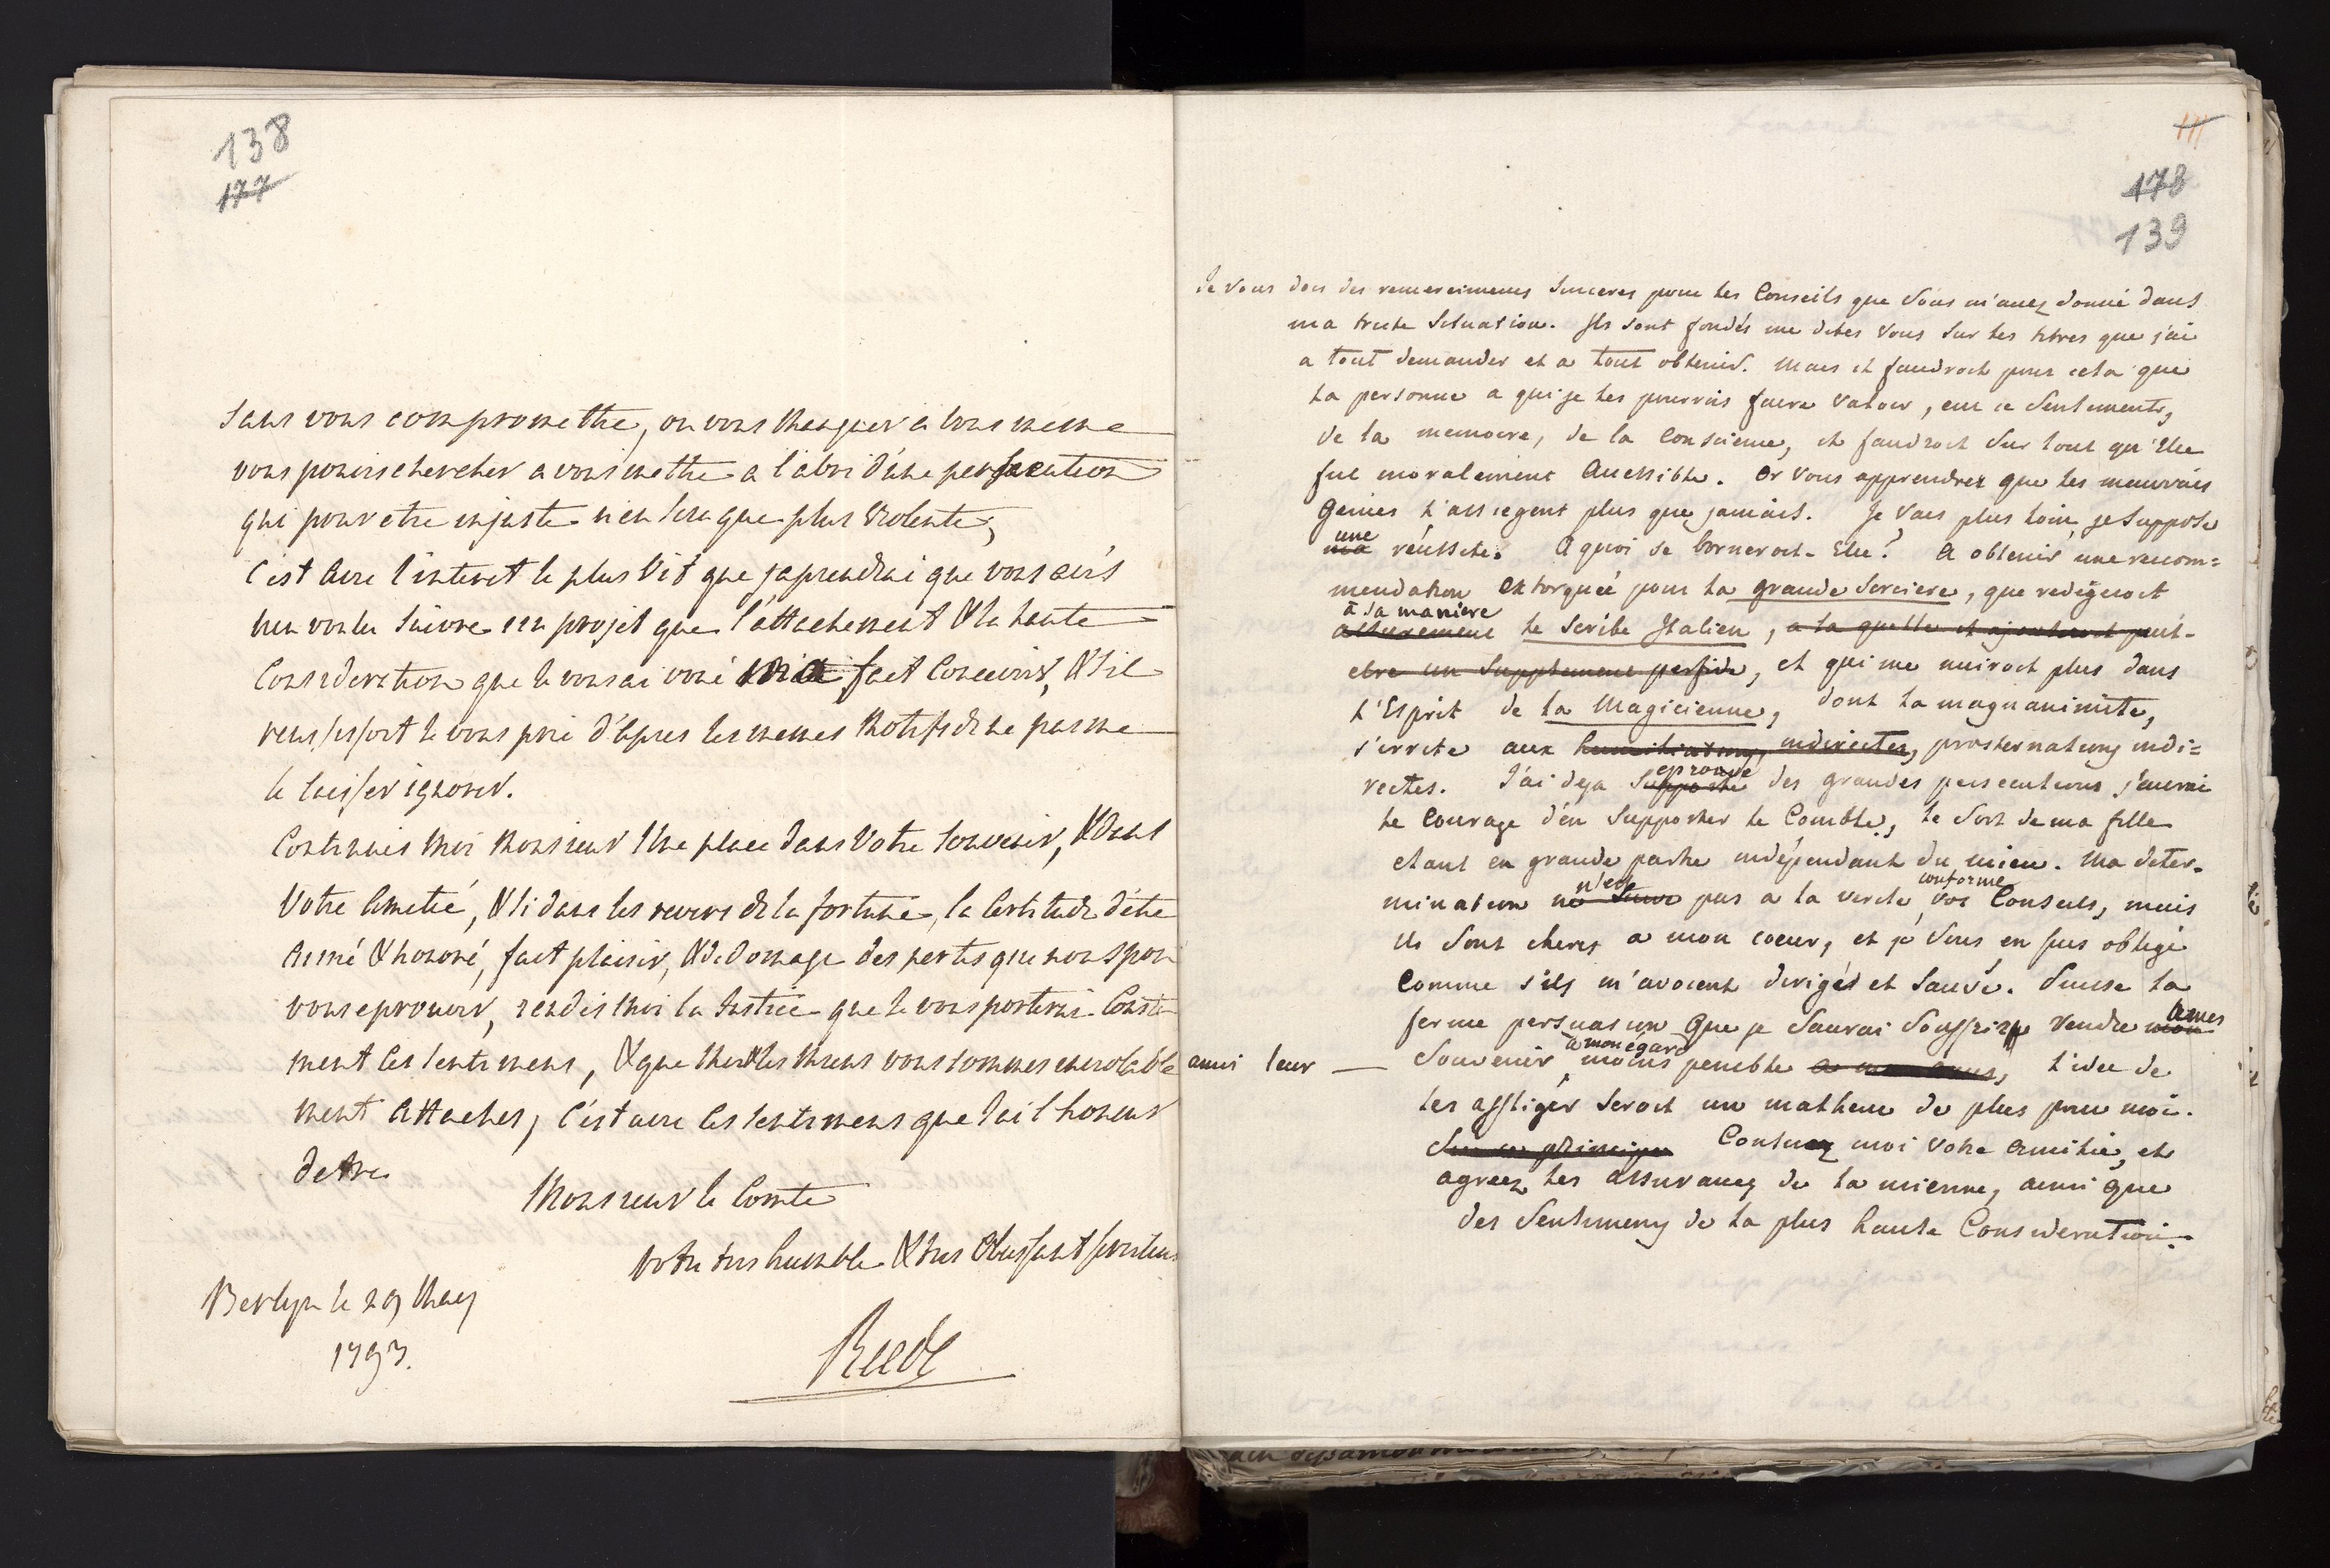 138
177
sans vous compromettre, ou vous manquer a vous meme
vous pouvés chercher a vous mettre a l'abri d'une persecution
qui pour etre injuste n'en sera que plus violente,
C'est avec l'interet le plus vif que j'aprendrai que vous aiés
bien voulu suivre un projet que l'attachement & la haute
Consideration que je vous ai voué m'a fait Concevoir, & s'il
reussissoit je vous prie d'apres les memes Motifs de ne pas me
le laisser ignorer.
Continués moi Monsieur Une place dans Votre Souvenir, & dans
Votre Amitié, & si dans les revers de la fortune, la Certitude d'etre
Aimé & honoré, fait plaisir, & dedomage des pertes que nous pou
vons eprouver, rendés moi la Justice que je vous porterai Consta
ment ces sentimens, & que moi & les miens vous sommes inviolable
ment Attachés, C'est avec ces sentimens que j'ai l'honneur
detre
Monsieur le Comte
Votre tres humble & tres Obeissant serviteur
Berlyn le 29 May
1793.
Reede
111
178
139
Je vous dois des remerciments sinceres pour les Conseils que Vous m'avez donné dans
ma triste Situation. Ils sont fondés me dites Vous sur les titres que j'ai
a tout demander et a tout obtenir. Mais il faudroit pour cela que
la personne a qui je les pourrois faire valoir, eut ce Sentiments,
de la memoire, de la Conscience, il faudroit Sur tout qu'Elle
fut moralement Accessible. Or Vous apprendrez que les mauvais
Genies l'assiegent plus que jamais. Je Vais plus loin, je suppose
une
ma réussite. A quoi se borneroit-Elle? A obtenir une recom=
mendation extorquée pour la grande Sorciere, que redigeroit
à sa maniere
assurement le Scribe Italien, a la quelle il ajouteroit peut-
etre un Supplement perfide, et qui me nuiroit plus dans
l'Esprit de la Magicienne, dont la magnanimite,
s'irrite aux humiliations, indirectes, prosternations indi=
eprouvé
rectes. J'ai deja Supporté des grandes persecutions j'aurai
le Courage d'en Supporter le Comble, le Sort de ma fille
etant en grande partie indépendant du mien. Ma deter-
n'est conforme
mination ne Suive pas a la verité, vos Conseils, mais
ils sont chers a mon coeur, et je Vous en suis obligé
Comme s'ils m'avoient dirigés et Sauvé. Puisse la
ferme persuasion que je Saurai Souffrir Rendre mon
Amis
à mon egard
amis leur — Souvenir, moins penible a mes amis, l'idee de
les affliger Seroit un malheur de plus pour moi.
Sur ce principe Contuez moi Votre Amitie, et
agreez les assurances de la mienne, ainsi que
des Sentimens de la plus haute Consideration.